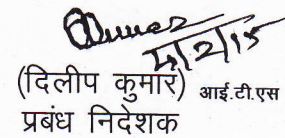 (दिलीप कुमार) आई.टी.एस
प्रबंध निदेशक